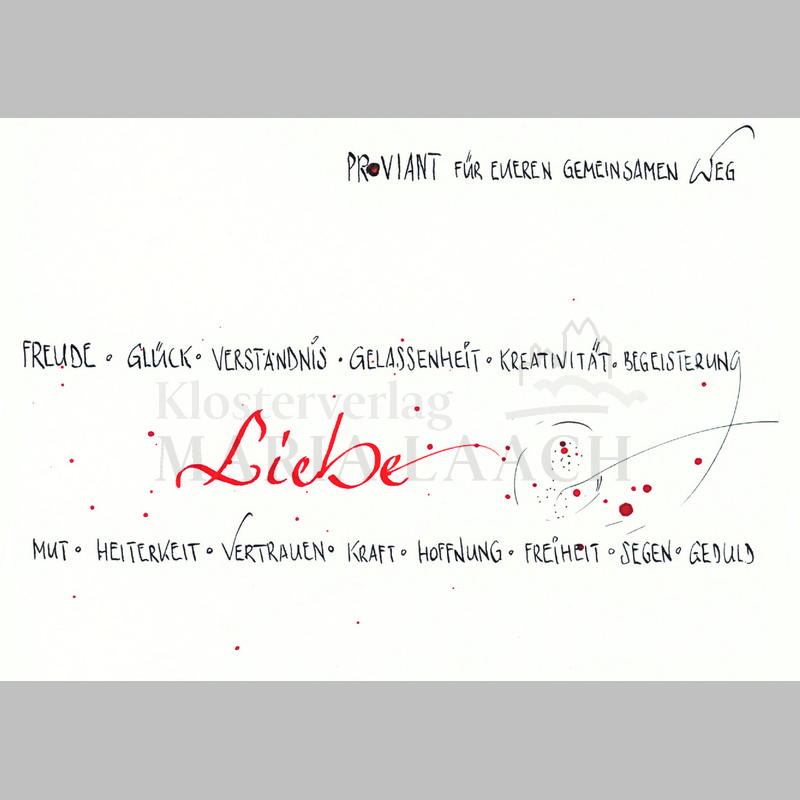 PROVIANT FÜR EUEREN GEMEINSAMEN WEG
FREUDE • GLÜCK • VERSTÄNDNIS • GELASSENHEIT • KREATIVITÄT • BEGEISTERUNG
Klosterverlag
MARIA LAACH
Liebe
MUT • HEITERKEIT • VERTRAUEN • KRAFT • HOFFNUNG • FREIHEIT • SEGEN • GEDULD